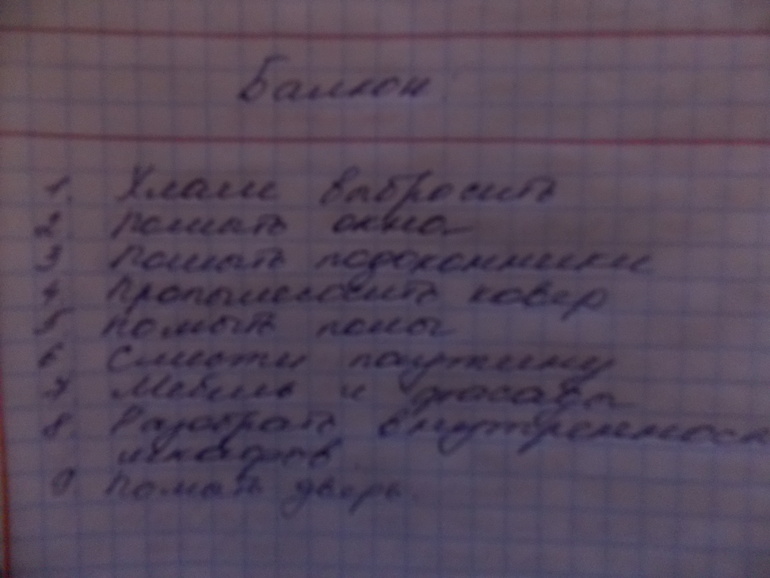 Балкон
1. Хлам выбросить
2. Помыть окна
3 Помыть подоконники
4. Пропылесосить ковер
5 Помыть полы
6 Смести паутину
7 Мебель и фасады
8. Разобрать внутренност
шкафов
9. Помыть дверь.